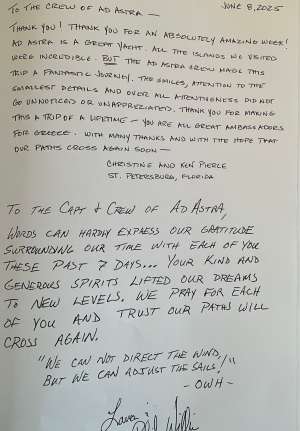 TO THE CREW OF AD ASTRA —
JUNE 8, 2025
THANK YOU! THANK YOU FOR AN ABSOLUTELY AMAZING WEEK!
AD ASTRA IS A GREAT YACHT. ALL THE ISLANDS WE VISITED
WERE INCREDIBLE. BUT THE AD ASTRA CREW MADE THIS
TRIP A FANTASTIC JOURNEY. THE SMILES, ATTENTION TO THE
SMALLEST DETAILS AND OVER ALL ATTENTIVENESS DID NOT
GO UNNOTICED OR UNAPPRECIATED. THANK YOU FOR MAKING
THIS A TRIP OF A LIFETIME — YOU ARE ALL GREAT AMBASSADORS
FOR GREECE. WITH MANY THANKS AND WITH THE HOPE THAT
OUR PATHS CROSS AGAIN SOON —
CHRISTINE AND KEN PIERCE
ST. PETERSBURG, FLORIDA
TO THE CAPT & CREW OF AD ASTRA,
WORDS CAN HARDLY EXPRESS OUR GRATITUDE
SURROUNDING OUR TIME WITH EACH OF YOU
THESE PAST 7 DAYS... YOUR KIND AND
GENEROUS SPIRITS LIFTED OUR DREAMS
TO NEW LEVELS. WE PRAY FOR EACH
OF YOU AND TRUST OUR PATHS WILL
CROSS AGAIN.
"WE CAN NOT DIRECT THE WIND,
BUT WE CAN ADJUST THE SAILS!"
- OWH -